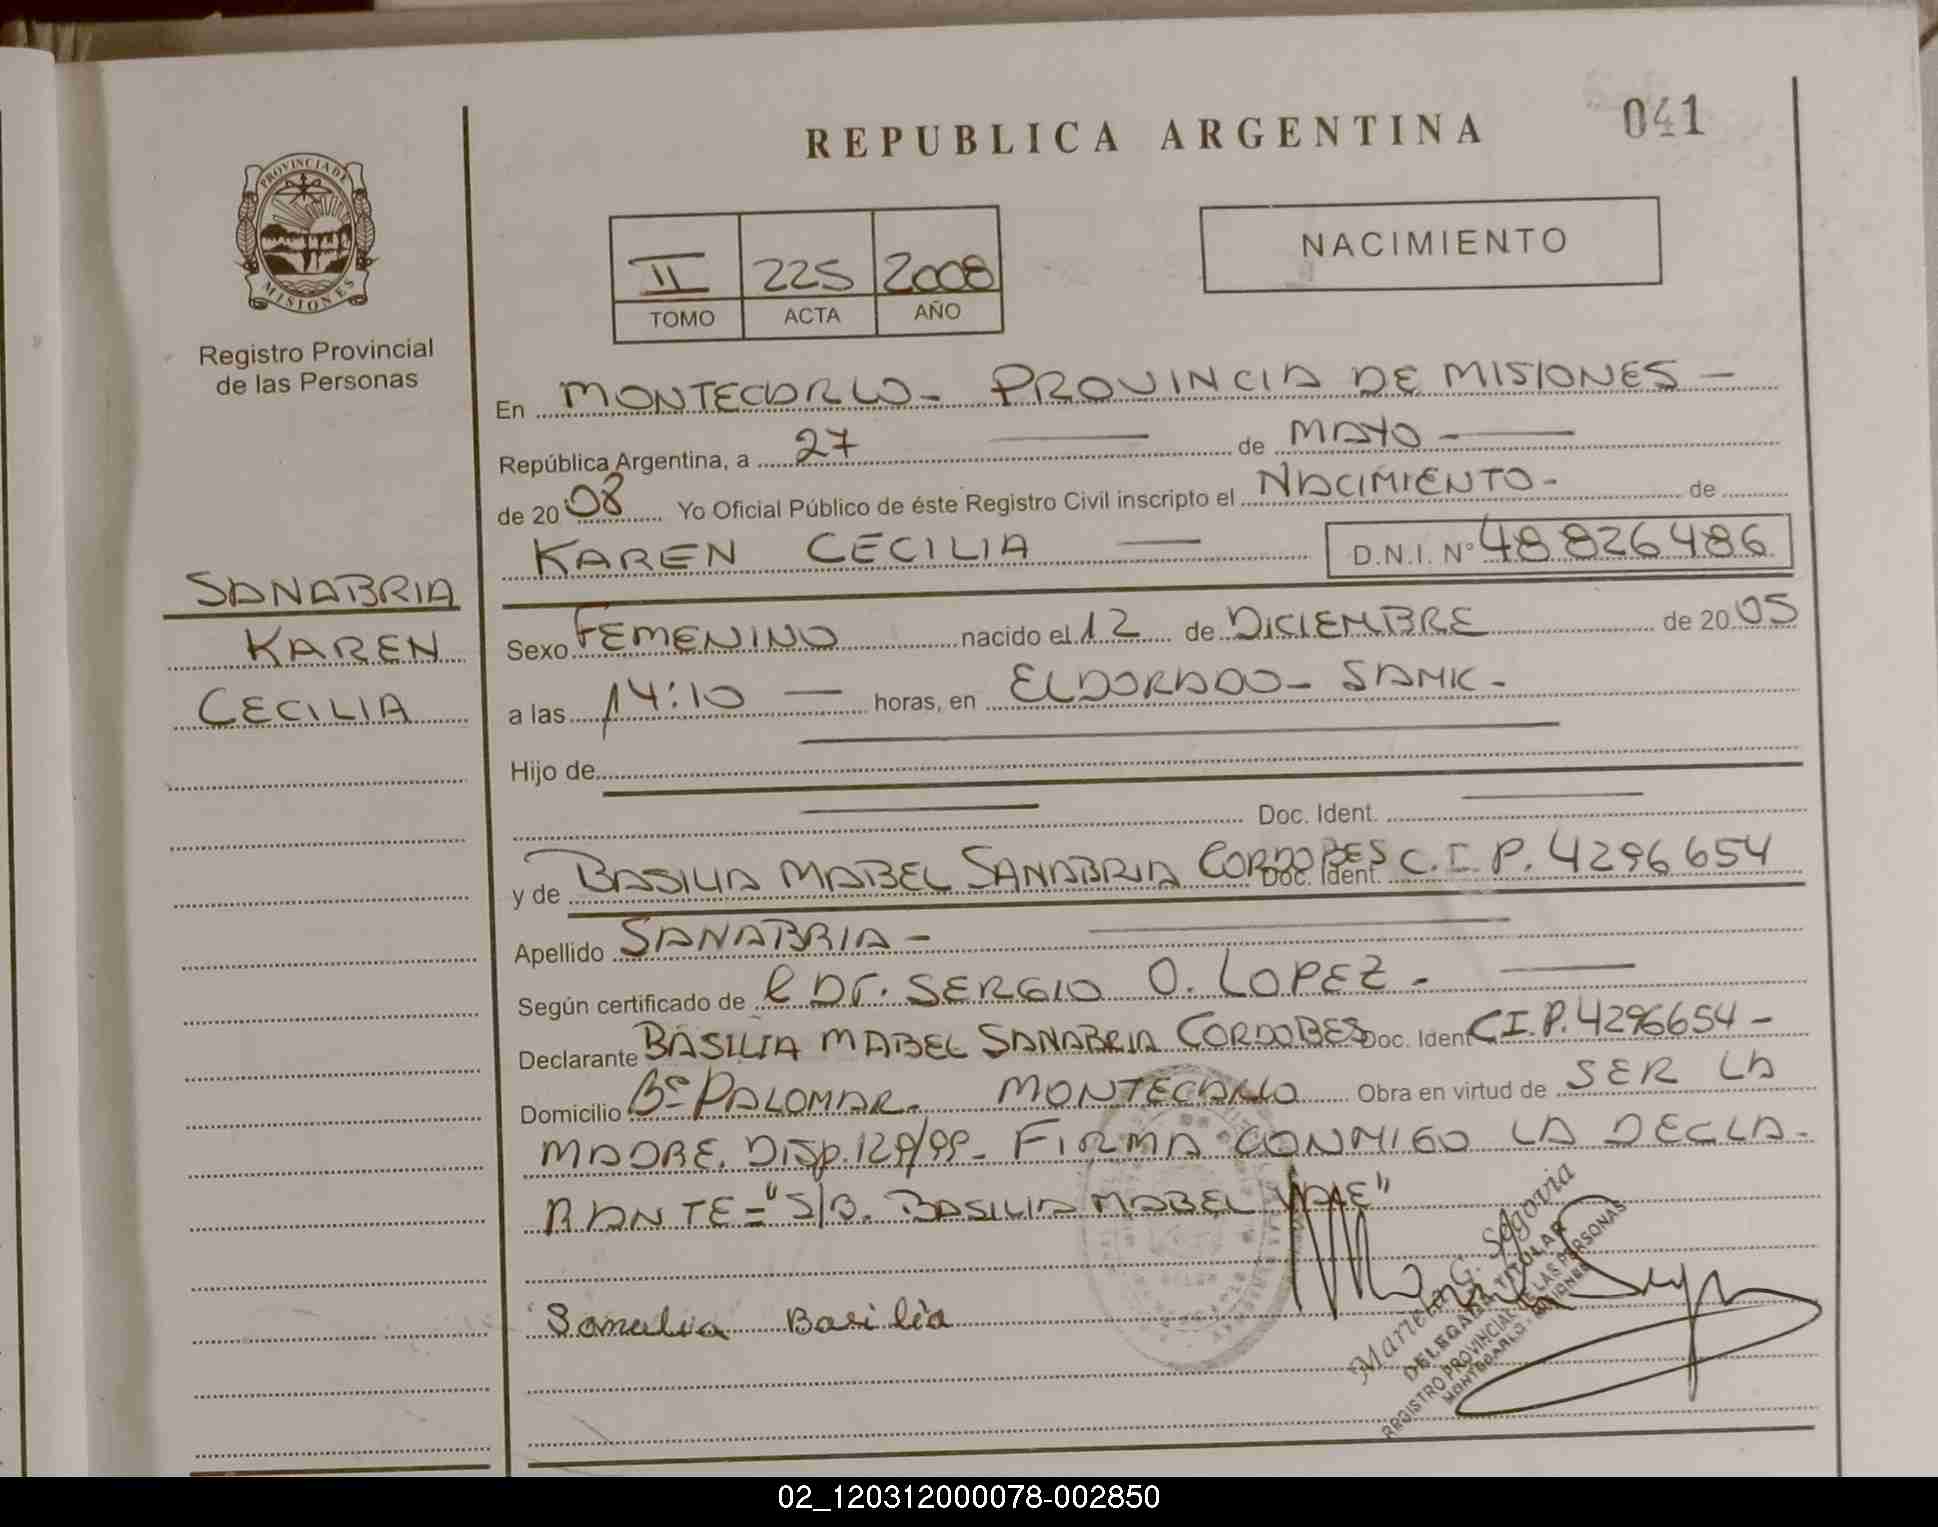 REPUBLICA ARGENTINA
041
PROVINCIA DE
MISIONES
Registro Provincial
de las Personas
II 225 2008
TOMO ACTA AÑO
NACIMIENTO
En MONTECARLO - PROVINCIA DE MISIONES -
República Argentina, a 27 de MAYO -
de 2008 Yo Oficial Público de éste Registro Civil inscripto el NACIMIENTO - de
KAREN CECILIA D.N.I. Nº 48826486
SANABRIA
KAREN
CECILIA
Sexo FEMENINO nacido el 12 de DICIEMBRE de 2005
a las 14:10 horas, en ELDORADO - SAMIC -
Hijo de
Doc. Ident.
y de BASILIA MABEL SANABRIA CORDOBES Doc. Ident. C.I.P. 4296654
Apellido SANABRIA -
Según certificado de Dr. SERGIO O. LOPEZ -
Declarante BASILIA MABEL SANABRIA CORDOBES Doc. Ident C.I.P. 4296654 -
Domicilio Bº PALOMAR - MONTECARLO Obra en virtud de SER LA
MADRE. Disp. 129/99 - FIRMA CONMIGO LA DECLA-
RANTE = "S/B. BASILIA MABEL VALE"
Sanabria Basilia
Mariela G. Segovia
DELEGADA TITULAR
REGISTRO PROVINCIAL DE LAS PERSONAS
MONTECARLO - MISIONES
02_120312000078-002850